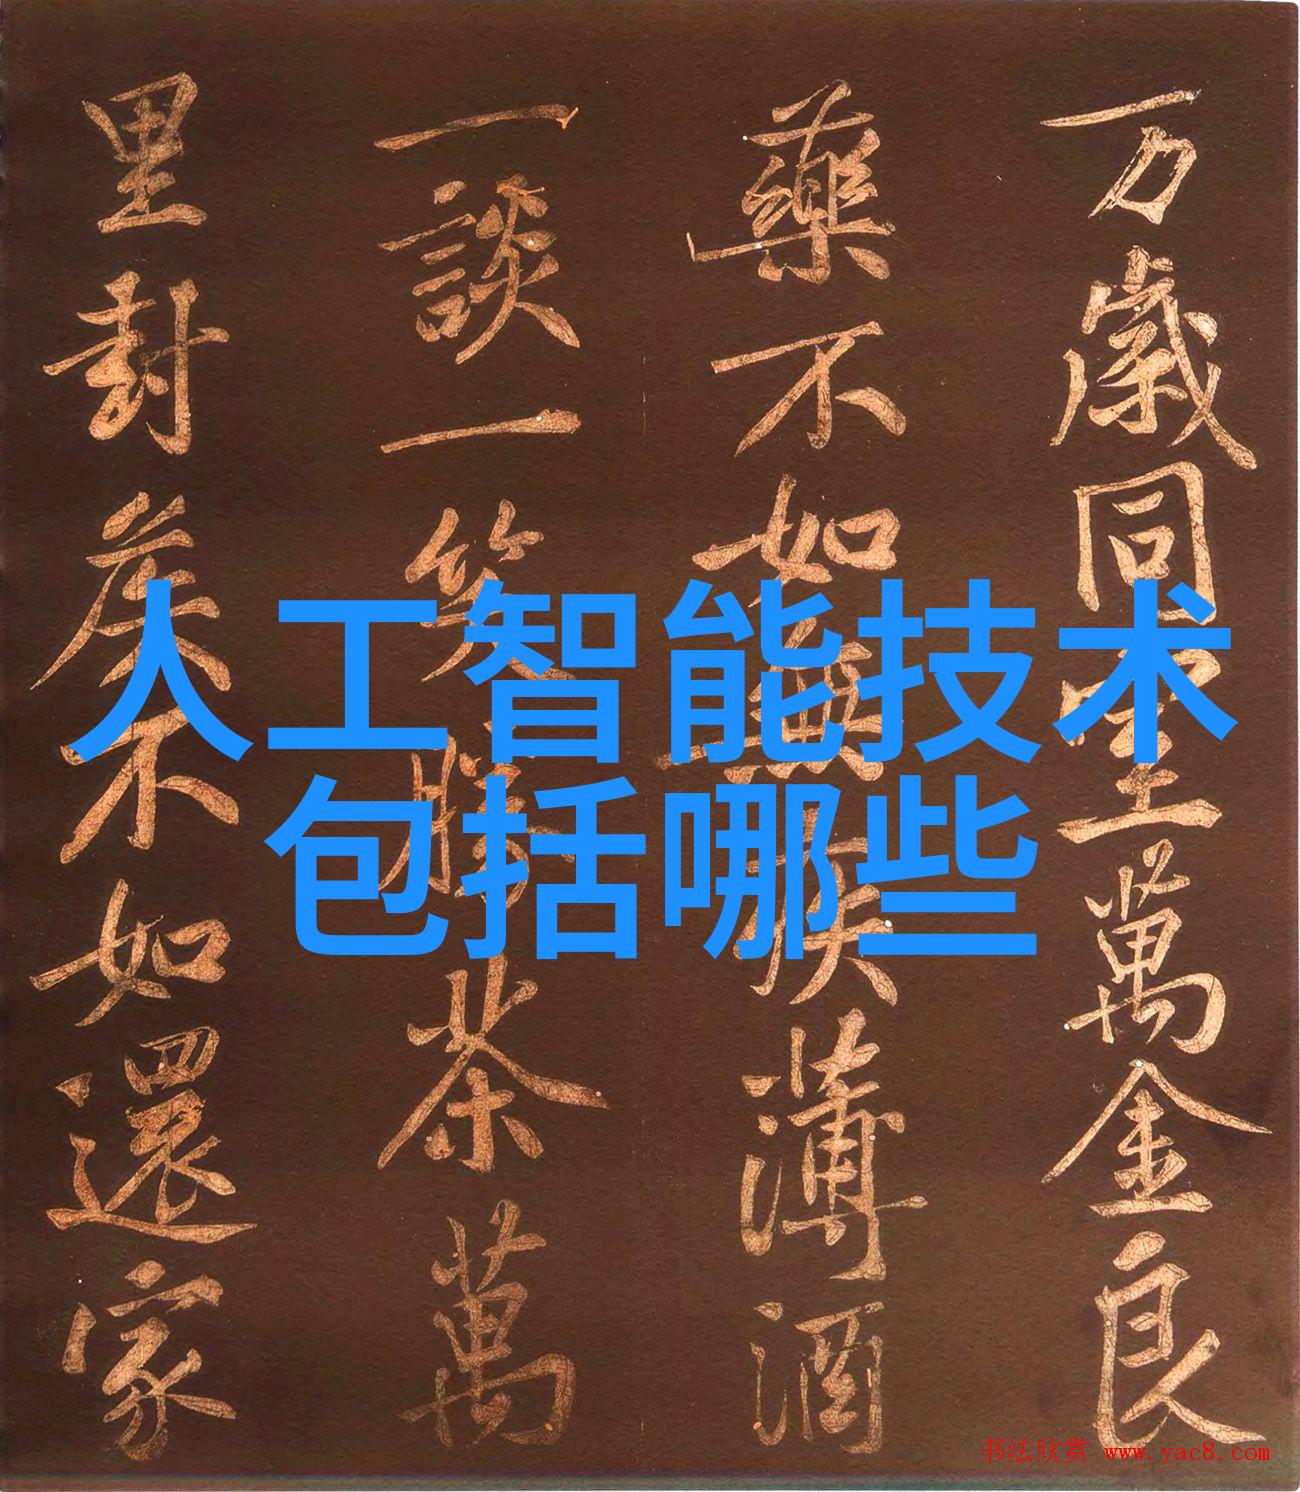 人工智能技术
包括哪些
万歲同室萬金良
藥不如無疾薄酒
一談一笑勝茶萬
里封侯不如還家
书法欣赏 www.yac8.com